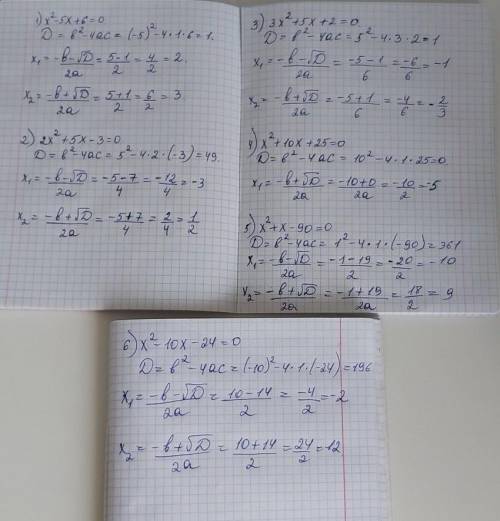 1) x²-5x+6=0
D = в²-4ac = (-5)²-4·1·6=1.
x₁ = (-в-√D)/2a = (5-1)/2 = 4/2 = 2.
x₂ = (-в+√D)/2a = (5+1)/2 = 6/2 = 3.
2) 2x²+5x-3=0
D = в²-4ac = 5²-4·2·(-3)=49.
x₁ = (-в-√D)/2a = (-5-7)/4 = -12/4 = -3
x₂ = (-в+√D)/2a = (-5+7)/4 = 2/4 = 1/2
3) 3x²+5x+2=0.
D = в²-4ac = 5²-4·3·2=1
x₁ = (-в-√D)/2a = (-5-1)/6 = -6/6 = -1
x₂ = (-в+√D)/2a = (-5+1)/6 = -4/6 = -2/3
4) x²+10x+25=0
D = в²-4ac = 10²-4·1·25=0.
x₁ = (-в+√D)/2a = (-10+0)/2a = -10/2 = -5
5) x²+x-90=0
D = в²-4ac = 1²-4·1·(-90)=361
x₁ = (-в-√D)/2a = (-1-19)/2 = -20/2 = -10
x₂ = (-в+√D)/2a = (-1+19)/2a = 18/2 = 9
6) x²-10x-24=0
D = в²-4ac = (-10)²-4·1·(-24)=196
x₁ = (-в-√D)/2a = (10-14)/2 = -4/2 = -2
x₂ = (-в+√D)/2a = (10+14)/2 = 24/2 = 12